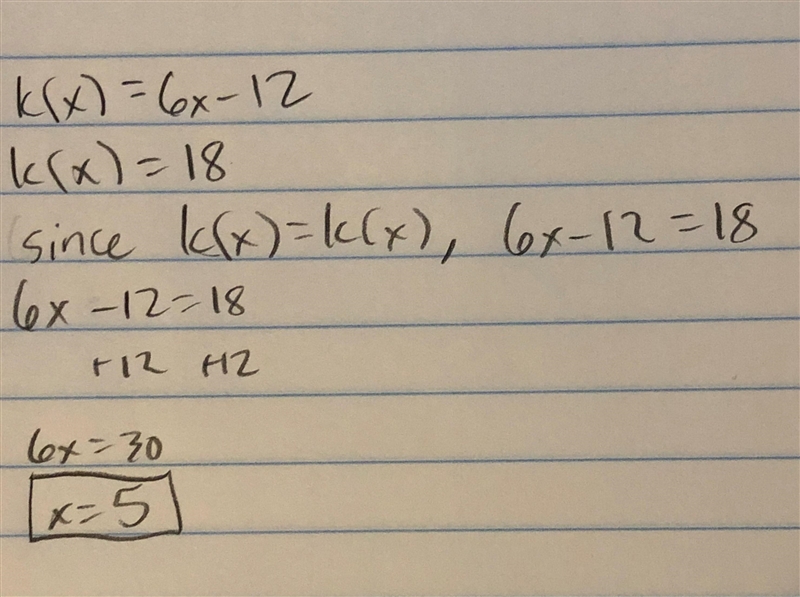 k(x)=6x-12
k(x)=18
since k(x)=k(x), 6x-12=18
6x-12=18
+12 +12
6x=30
x=5